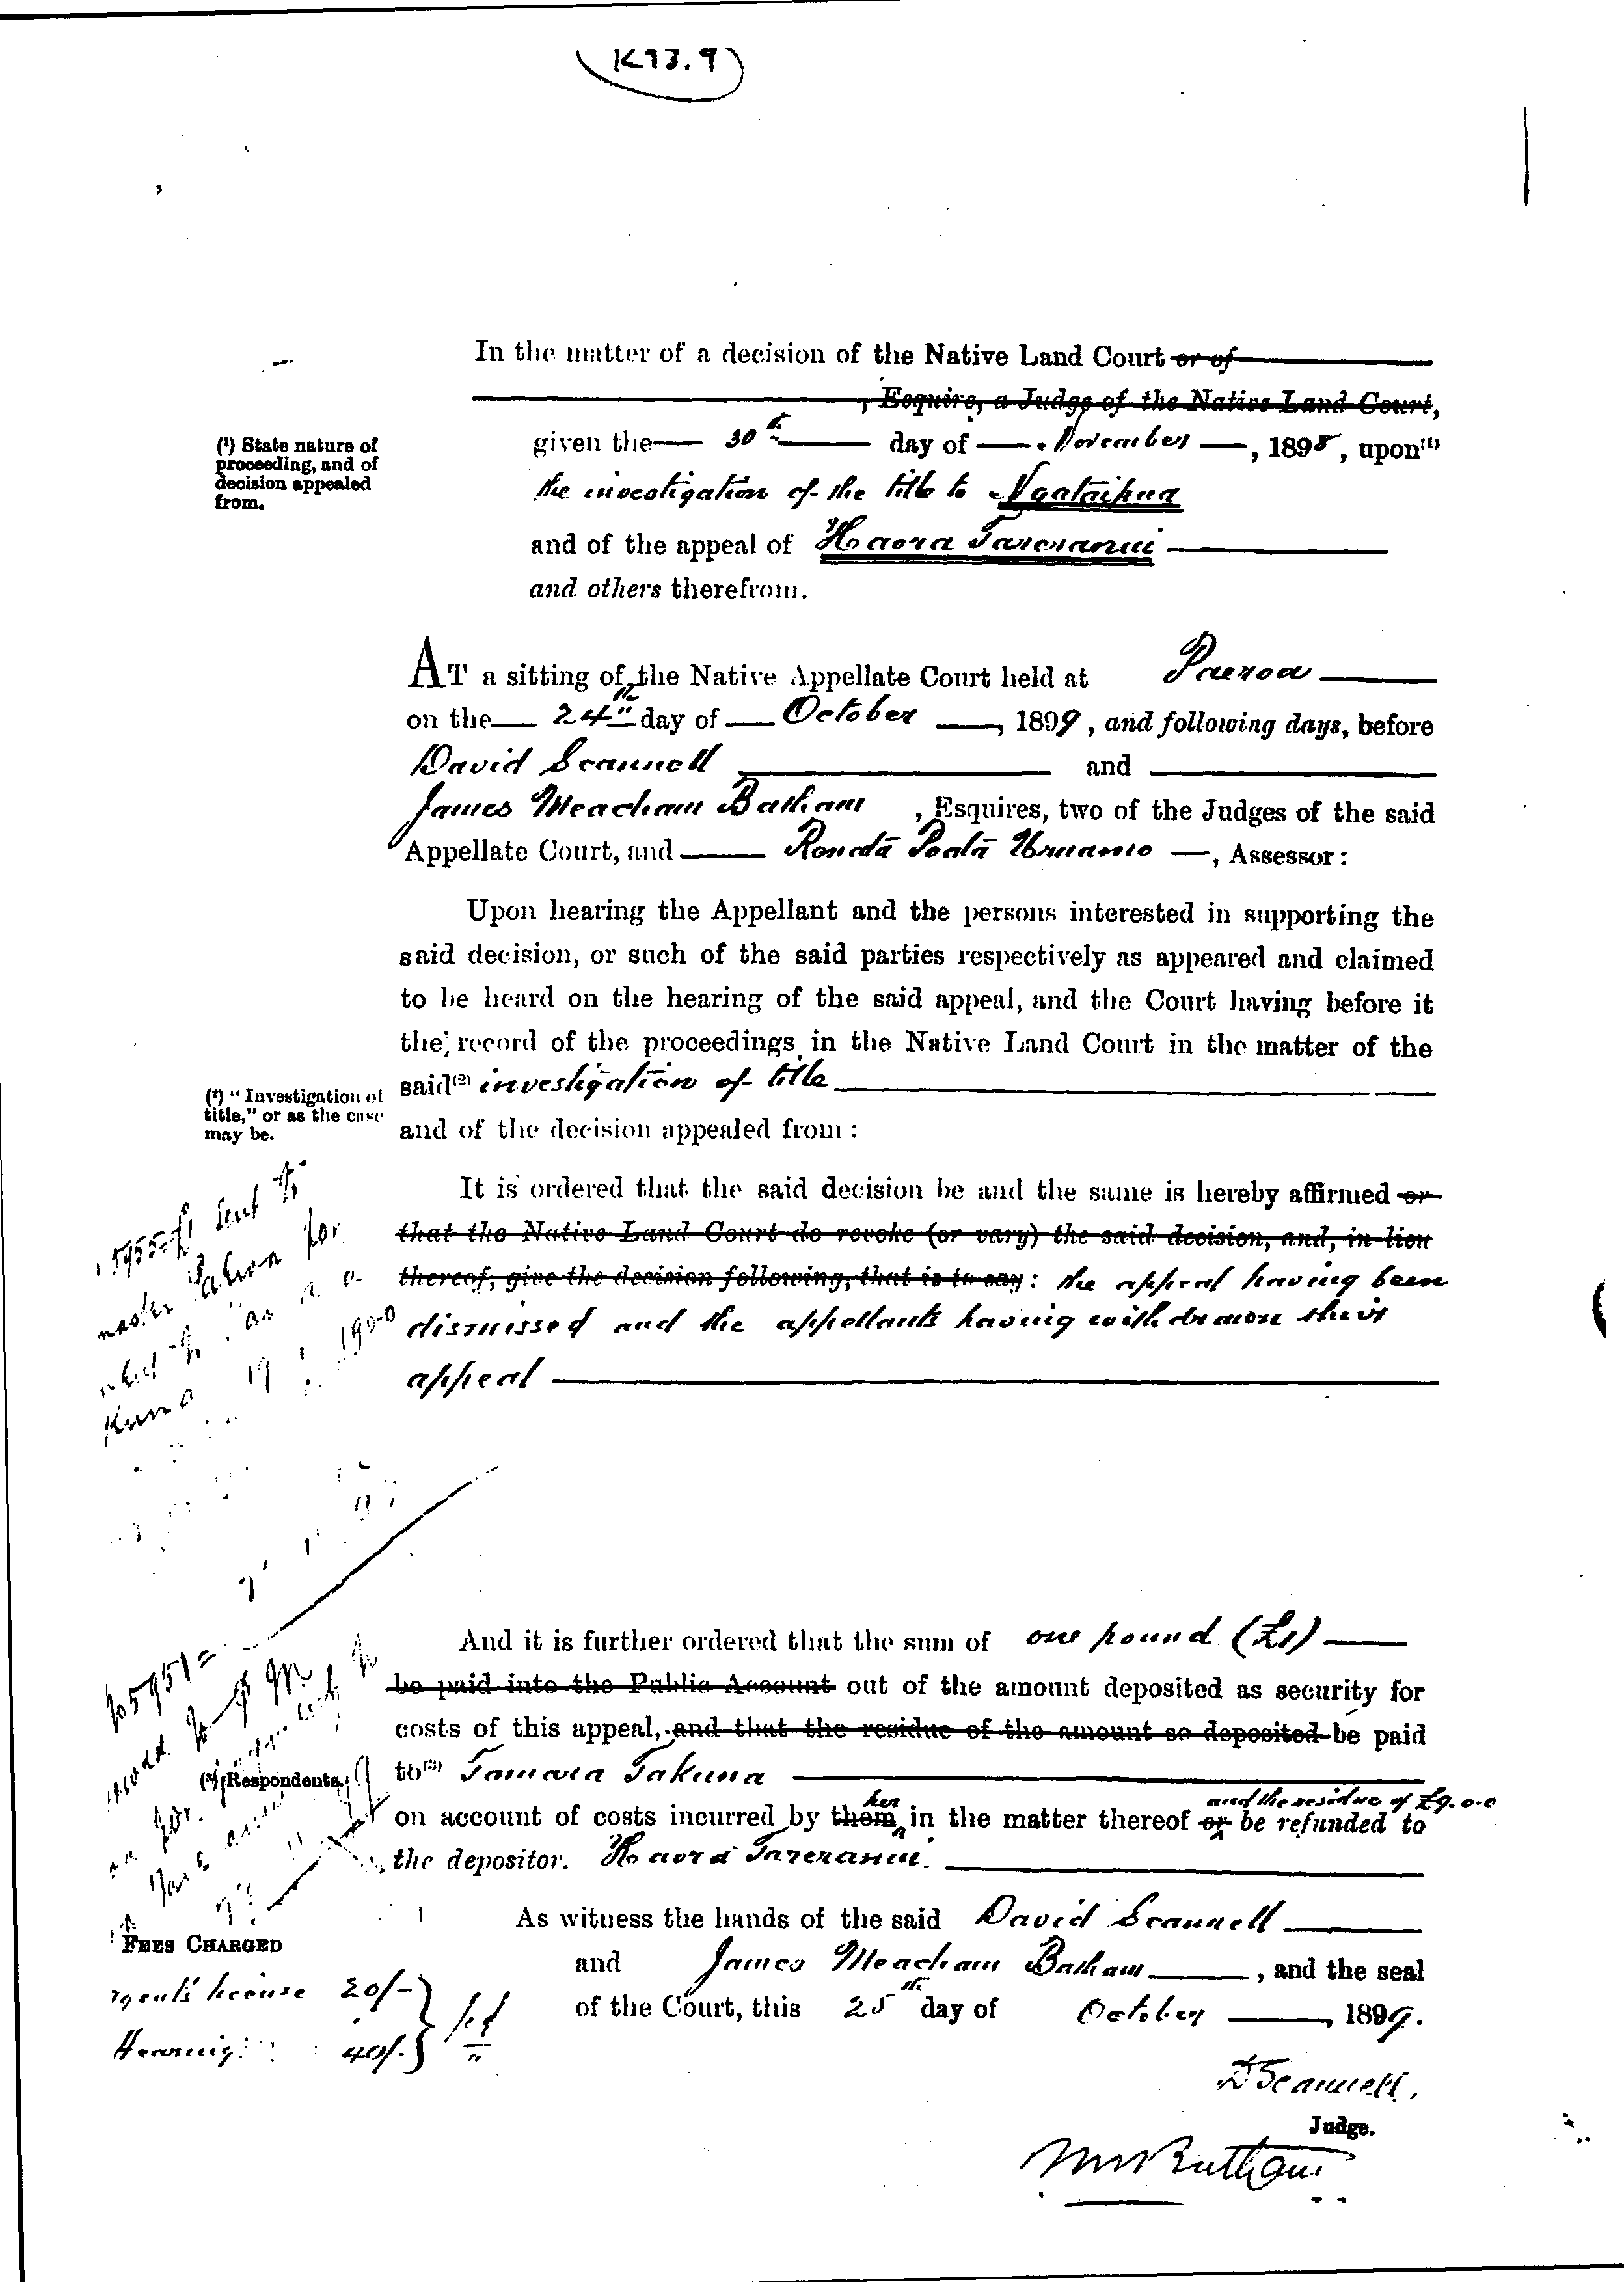 K73.9
In the matter of a decision of the Native Land Court or of
, Esquire, a Judge of the Native Land Court,
given the 30th day of November, 1898, upon(1)
(1) State nature of
proceeding, and of
decision appealed
from.
the investigation of the title to Ngataipua
and of the appeal of Haora Tareranui
and others therefrom.
AT a sitting of the Native Appellate Court held at Paeroa
on the 24th day of October, 1899, and following days, before
David Scannell and
James Meacham Batham, Esquires, two of the Judges of the said
Appellate Court, and Assessor:
Upon hearing the Appellant and the persons interested in supporting the
said decision, or such of the said parties respectively as appeared and claimed
to be heard on the hearing of the said appeal, and the Court having before it
the record of the proceedings in the Native Land Court in the matter of the
said(2) investigation of title
(2) "Investigation of
title," or as the case
may be.
and of the decision appealed from:
It is ordered that the said decision be and the same is hereby affirmed or
that the Native Land Court do revoke (or vary) the said decision, and, in lieu
thereof, give the decision following, that is to say: the appeal having been
dismissed and the appellants having withdrawn their
appeal
sent
for
1900
And it is further ordered that the sum of one pound (£1)
be paid into the Public Account out of the amount deposited as security for
costs of this appeal, and that the residue of the amount so deposited be paid
to(3) Tamara Takuna
(3) Respondents.
and the residue of £9.0.0
on account of costs incurred by them her in the matter thereof or be refunded to
the depositor. Haora Tareranui.
As witness the hands of the said David Scannell
and James Meacham Batham, and the seal
of the Court, this 25th day of October 1899.
FEES CHARGED
license 20/-
Hearing 40/-
D Scannell.
Judge.
Batham